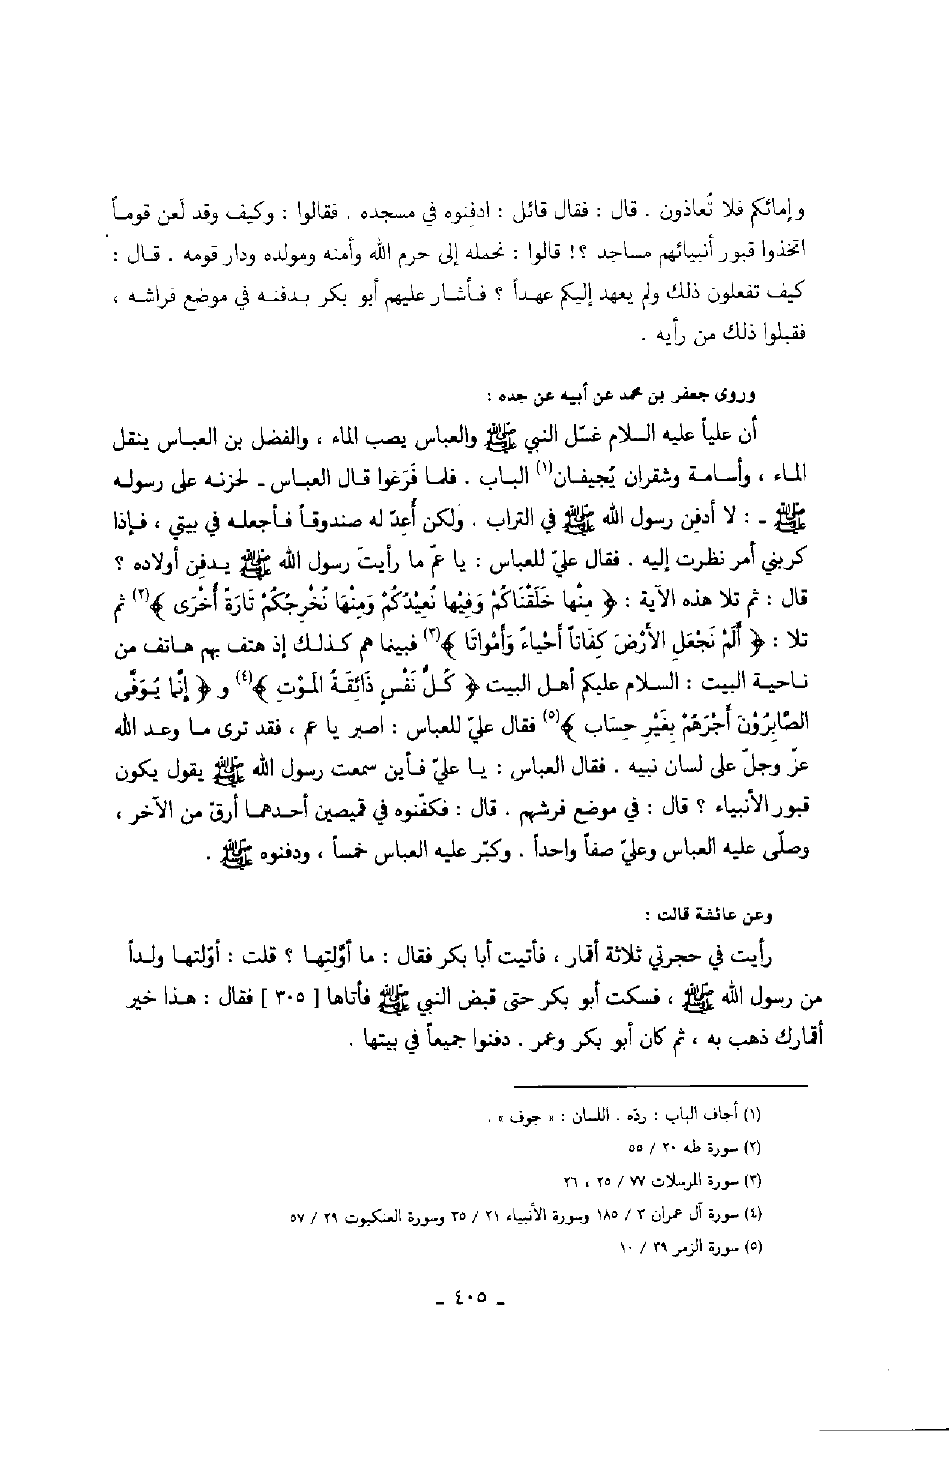 وإمائكم فلا تُعاذون . قال : فقال قائل : ادفنوه في مسجده . فقالوا : وكيف وقد لعن قوماً
اتخذوا قبور أنبيائهم مساجد ؟! قالوا : نحمله إلى حرم الله وأمنه ومولده ودار قومه . قال :
كيف تفعلون ذلك ولم يعهد إليكم عهداً ؟ فأشار عليهم أبو بكر بدفنه في موضع فراشه ،
فقبلوا ذلك من رأيه .
وروى جعفر بن محمد عن أبيه عن جده :
أن علياً عليه السلام غسّل النبي ﷺ والعباس يصب الماء ، والفضل بن العباس ينقل
الماء ، وأسامة وشقران يُجيفان(١) الباب . فلما فَرَغوا قال العباس ـ لحزنه على رسوله
ﷺ ـ : لا أدفن رسول الله ﷺ في التراب . ولكن أُعدّ له صندوقاً فأجعله في بيتي ، فإذا
كربني أمر نظرت إليه . فقال عليّ للعباس : يا عمّ ما رأيت رسول الله ﷺ يدفن أولاده ؟
قال : ثم تلا هذه الآية : ﴿ مِنْها خَلَقْنَاكُمْ وَفِيْها نُعِيْدُكُمْ وَمِنْهَا نُخْرِجُكُمْ تَارَةً أُخْرَى ﴾(٢) ثم
تلا : ﴿ أَلَمْ نَجْعَلِ الأَرْضَ كِفَاتاً أَحْيَاءً وَأَمْوَاتَا ﴾(٣) فبينما هم كذلك إذ هتف بهم هاتف من
ناحية البيت : السلام عليكم أهل البيت ﴿ كُلُّ نَفْسٍ ذَائِقَةُ المَوْتِ ﴾(٤) و ﴿ إنَّمَا يُوَفَّى
الصَّابِرُوْنَ أَجْرَهُمْ بِغَيْرِ حِسَاب ﴾(٥) فقال عليّ للعباس : اصبر يا عم ، فقد ترى ما وعد الله
عزّ وجلّ على لسان نبيه . فقال العباس : يا عليّ فأين سمعت رسول الله ﷺ يقول يكون
قبور الأنبياء ؟ قال : في موضع فرشهم . قال : فكفّنوه في قميصين أحدهما أرقّ من الآخر ،
وصلّى عليه العباس وعليّ صفاً واحداً . وكبّر عليه العباس خمساً ، ودفنوه ﷺ .
وعن عائشة قالت :
رأيت في حجرتي ثلاثة أقمار ، فأتيت أبا بكر فقال : ما أوَّلتِها ؟ قلت : أوّلتها ولداً
من رسول الله ﷺ ، فسكت أبو بكر حتى قبض النبي ﷺ فأتاها [ ٣٠٥ ] فقال : هذا خير
أقمارك ذهب به ، ثم كان أبو بكر وعمر . دفنوا جميعاً في بيتها .
(١) أجاف الباب : ردّه . اللسان : « جوف » .
(٢) سورة طه ٢٠ / ٥٥
(٣) سورة المرسلات ٧٧ / ٢٥ ، ٢٦
(٤) سورة آل عمران ٣ / ١٨٥ وسورة الأنبياء ٢١ / ٣٥ وسورة العنكبوت ٢٩ / ٥٧
(٥) سورة الزمر ٣٩ / ١٠
ـ ٤٠٥ ـ